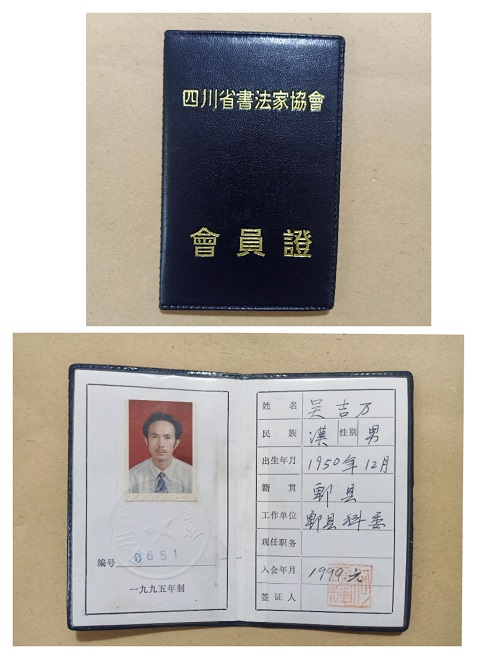 四川省書法家協會
會員證
0651
編号
一九九五年制
姓名 吴吉万
民族 漢 性别 男
出生年月 1950年12月
籍贯 郫县
工作单位 郫县科委
现任职务
入会年月 1999.
签证人